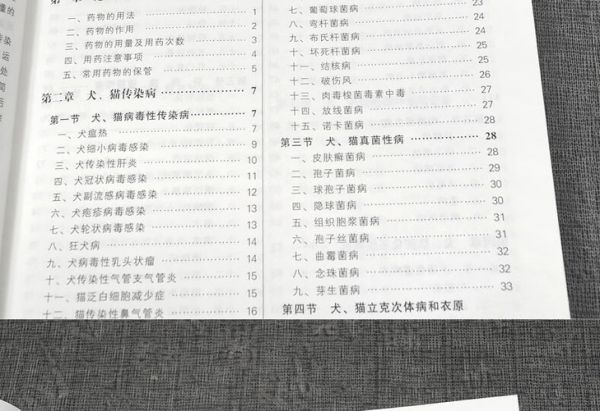 一、药物的用法 1
二、药物的作用 2
三、药物的用量及用药次数 3
四、用药注意事项 4
五、常用药物的保管 5
第二章 犬、猫传染病 7
第一节 犬、猫病毒性传染病 7
一、犬瘟热 7
二、犬细小病毒感染 9
三、犬传染性肝炎 10
四、犬冠状病毒感染 11
五、犬副流感病毒感染 12
六、犬疱疹病毒感染 12
七、犬轮状病毒感染 13
八、狂犬病 14
九、犬病毒性乳头状瘤 14
十、犬传染性气管支气管炎 15
十一、猫泛白细胞减少症 15
十二、猫传染性鼻气管炎 16
七、葡萄球菌病 23
八、弯杆菌病 24
九、布氏杆菌病 24
十、坏死杆菌病 25
十一、结核病 25
十二、破伤风 26
十三、肉毒梭菌毒素中毒 27
十四、放线菌病 27
十五、诺卡菌病 28
第三节 犬、猫真菌性病 28
一、皮肤癣菌病 28
二、孢子菌病 29
三、球孢子菌病 30
四、隐球菌病 30
五、组织胞浆菌病 31
六、孢子丝菌病 31
七、曲霉菌病 32
八、念珠菌病 32
九、芽生菌病 33
第四节 犬、猫立克次体病和衣原